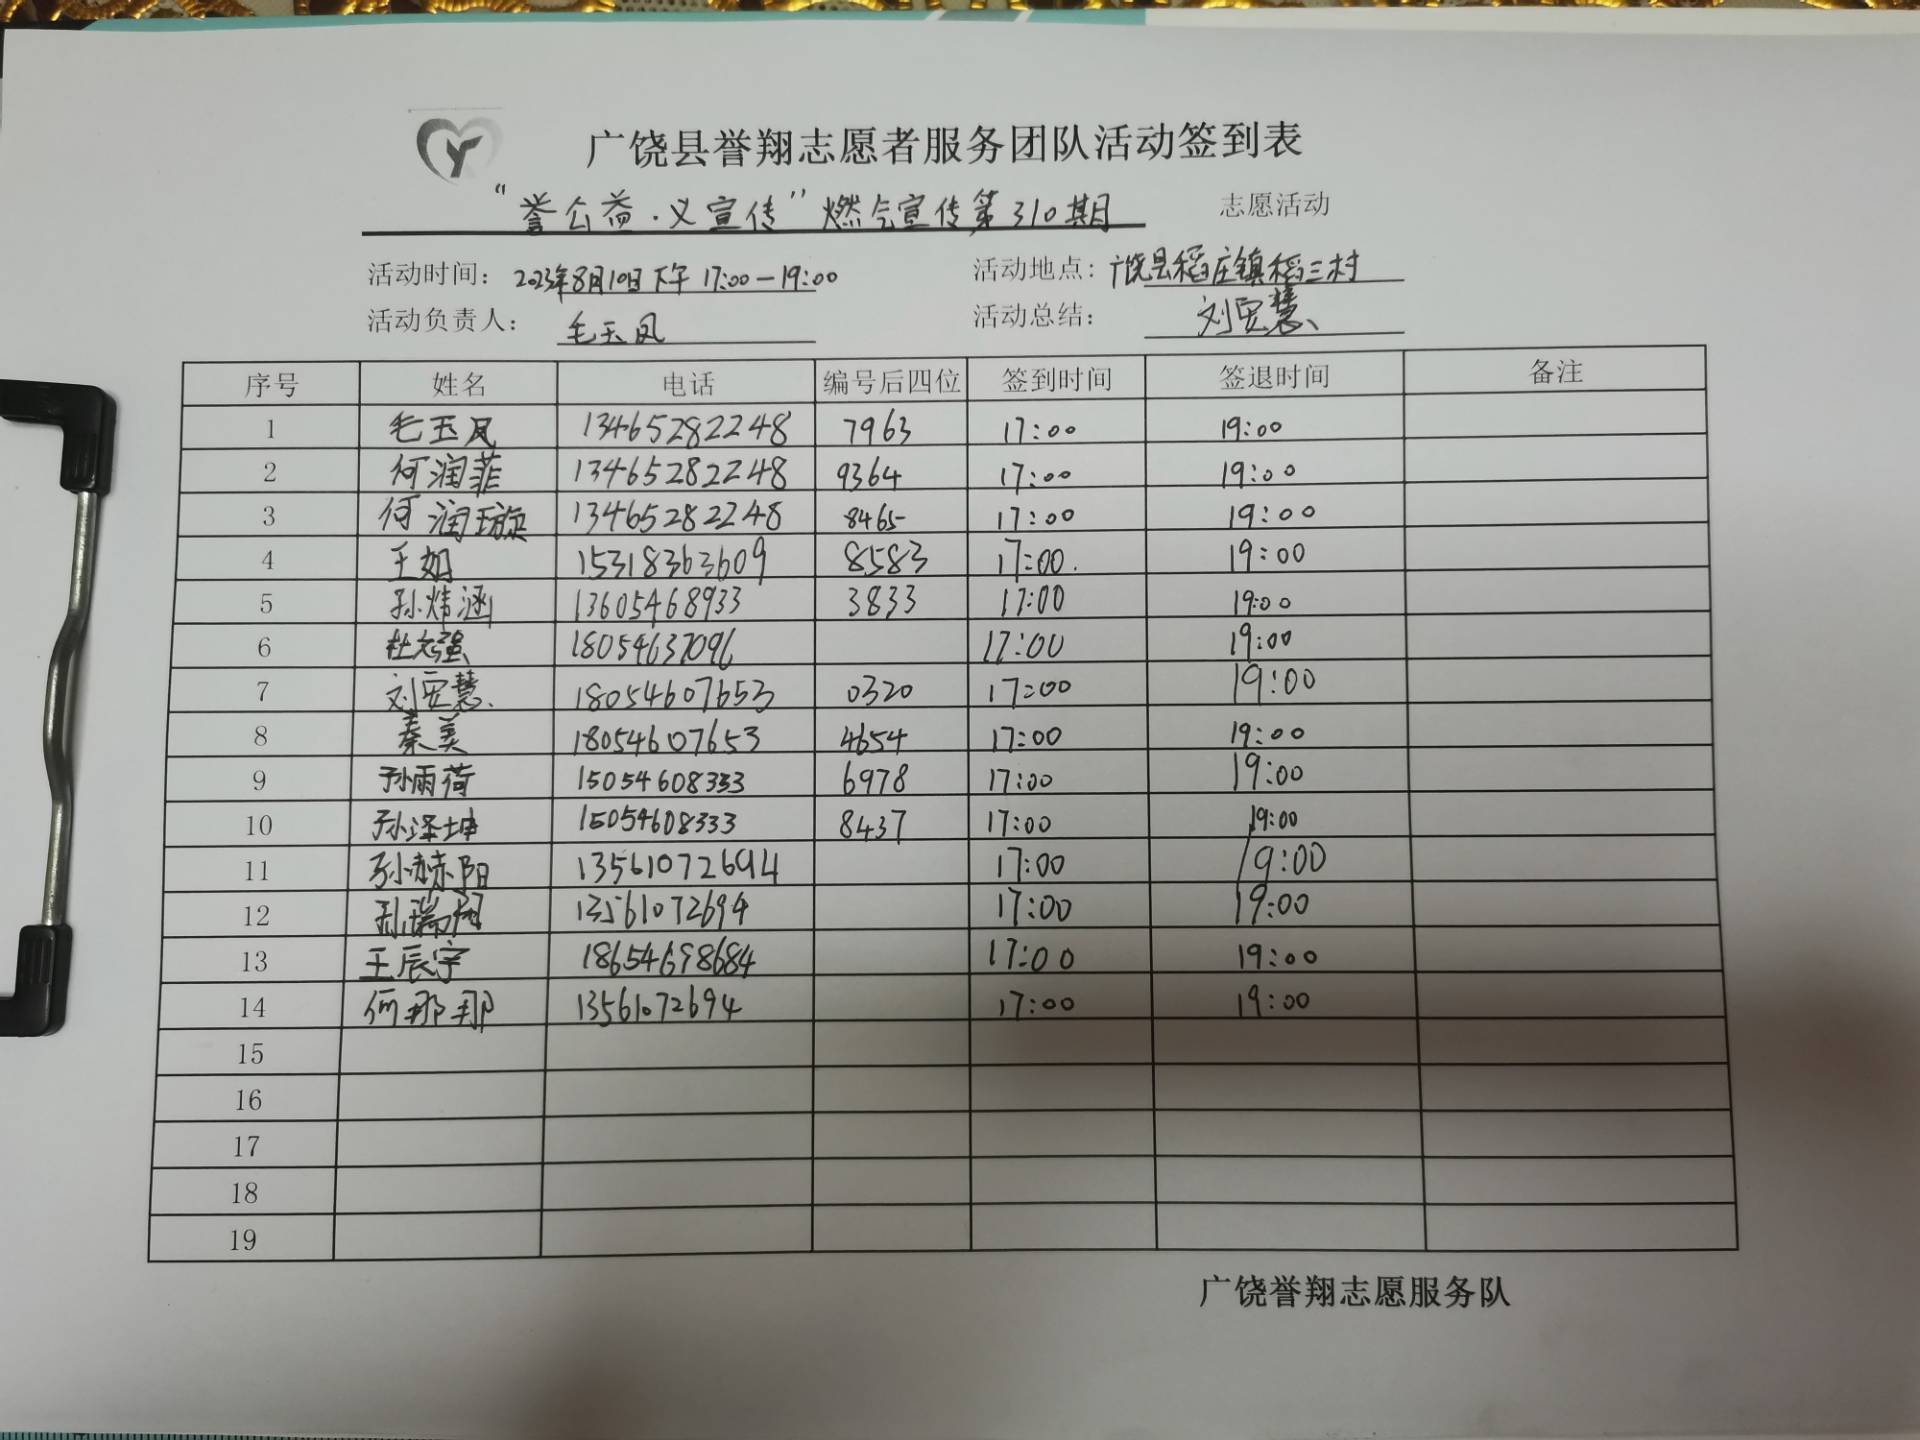 广饶县誉翔志愿者服务团队活动签到表
“誉公益·义宣传”燃气宣传第310期 志愿活动
活动时间： 2023年8月10日下午 17:00—19:00 活动地点： 广饶县稻庄镇稻三村
活动负责人： 毛玉凤 活动总结： 刘安慧
序号 姓名 电话 编号后四位 签到时间 签退时间 备注
1 毛玉凤 13465282248 7963 17:00 19:00
2 何润菲 13465282248 9364 17:00 19:00
3 何润璇 13465282248 8465 17:00 19:00
4 王如 15318363609 8583 17:00. 19:00
5 孙炜涵 13605468933 3833 17:00 19:00
6 杜文强 18054637096 17:00 19:00
7 刘安慧 18054607653 0320 17:00 19:00
8 秦美 18054607653 4654 17:00 19:00
9 孙雨荷 15054608333 6978 17:00 19:00
10 孙泽坤 15054608333 8437 17:00 19:00
11 孙赫阳 13561072694 17:00 19:00
12 孙瑞 13561072694 17:00 19:00
13 王辰宇 18654698684 17:00 19:00
14 何那那 13561072694 17:00 19:00
15
16
17
18
19
广饶誉翔志愿服务队